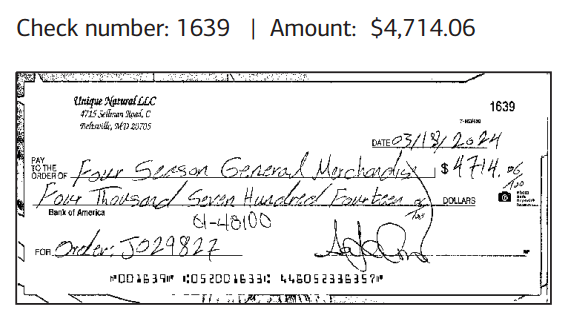 Check number: 1639 | Amount: $4,714.06
Unique Natural LLC
4715 Sellman Road, C
Beltsville, MD 20705
1639
DATE 03/18/2024
PAY TO THE ORDER OF Four Season General Merchandis $ 4714. 06/100
Four Thousand Seven Hundred Fourteen 06/100 DOLLARS
Bank of America
01-48100
FOR Order: J029827
⑈001639⑈ ⑆052001633⑆ 446052336357⑈